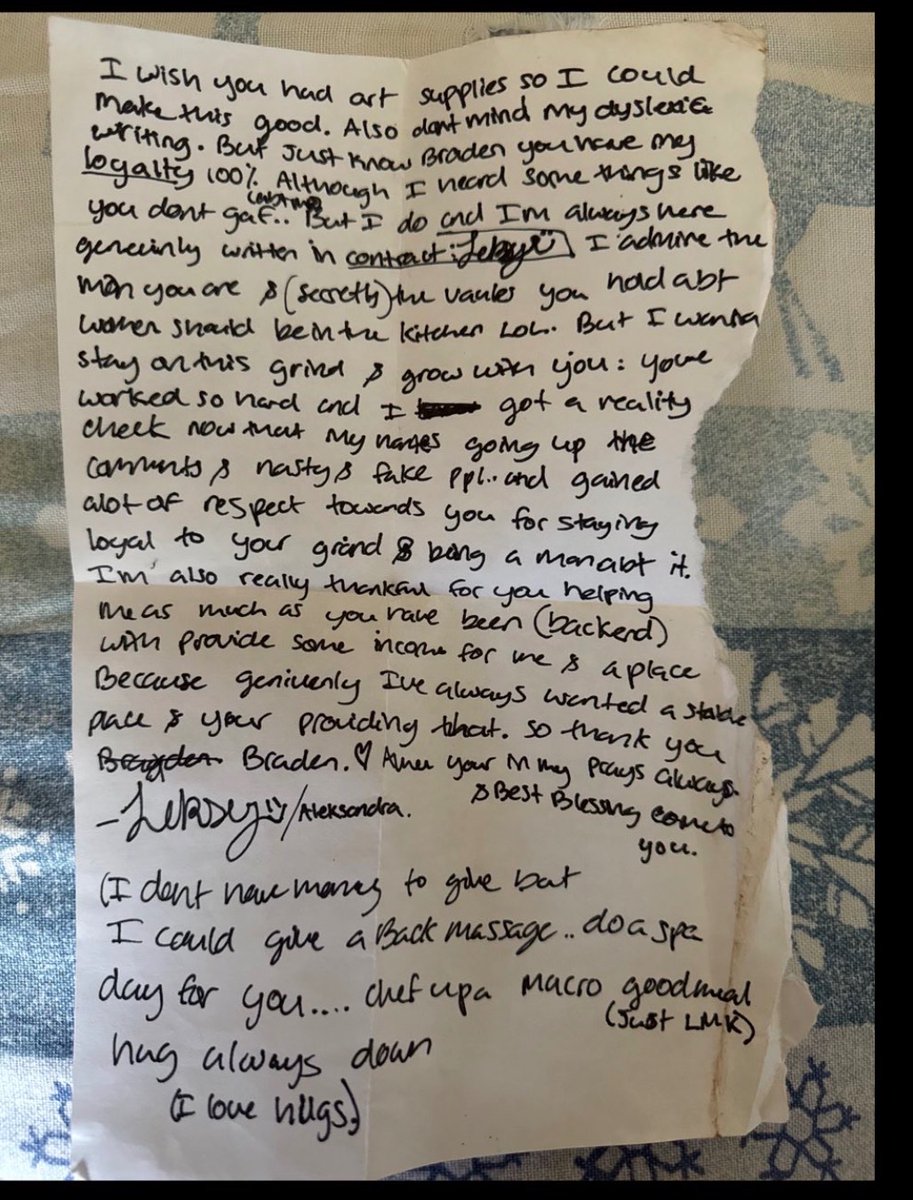 I wish you had art supplies so I could
make this good. Also dont mind my dyslexic
writing. But Just know Braden you have my
loyalty 100%. Although I heard some things like
you dont gaf.. But I do and I'm always here
genuinly written in contract: I admire the
man you are & (secretly) the vaules you hold abt
women should be in the kitchen LOL. But I wanna
stay on this grind & grow with you: youve
worked so hard and I got a reality
check now that my names going up the
comments & nasty & fake ppl.. and gained
alot of respect towards you for staying
loyal to your grind & being a man abt it.
I'm also really thankful for you helping
me as much as you have been (backend)
with provide some income for me & a place
Because geniuenly I've always wanted a stable
place & your providing that. So thank you
Brayden Braden.♡ your in my prays always.
& Best Blessing come to
you.
/Aleksandra.
(I dont have money to give but
I could give a Back massage.. do a spa
day for you.... chef up a macro good meal
(Just LMK)
hug always down
(I love hugs)